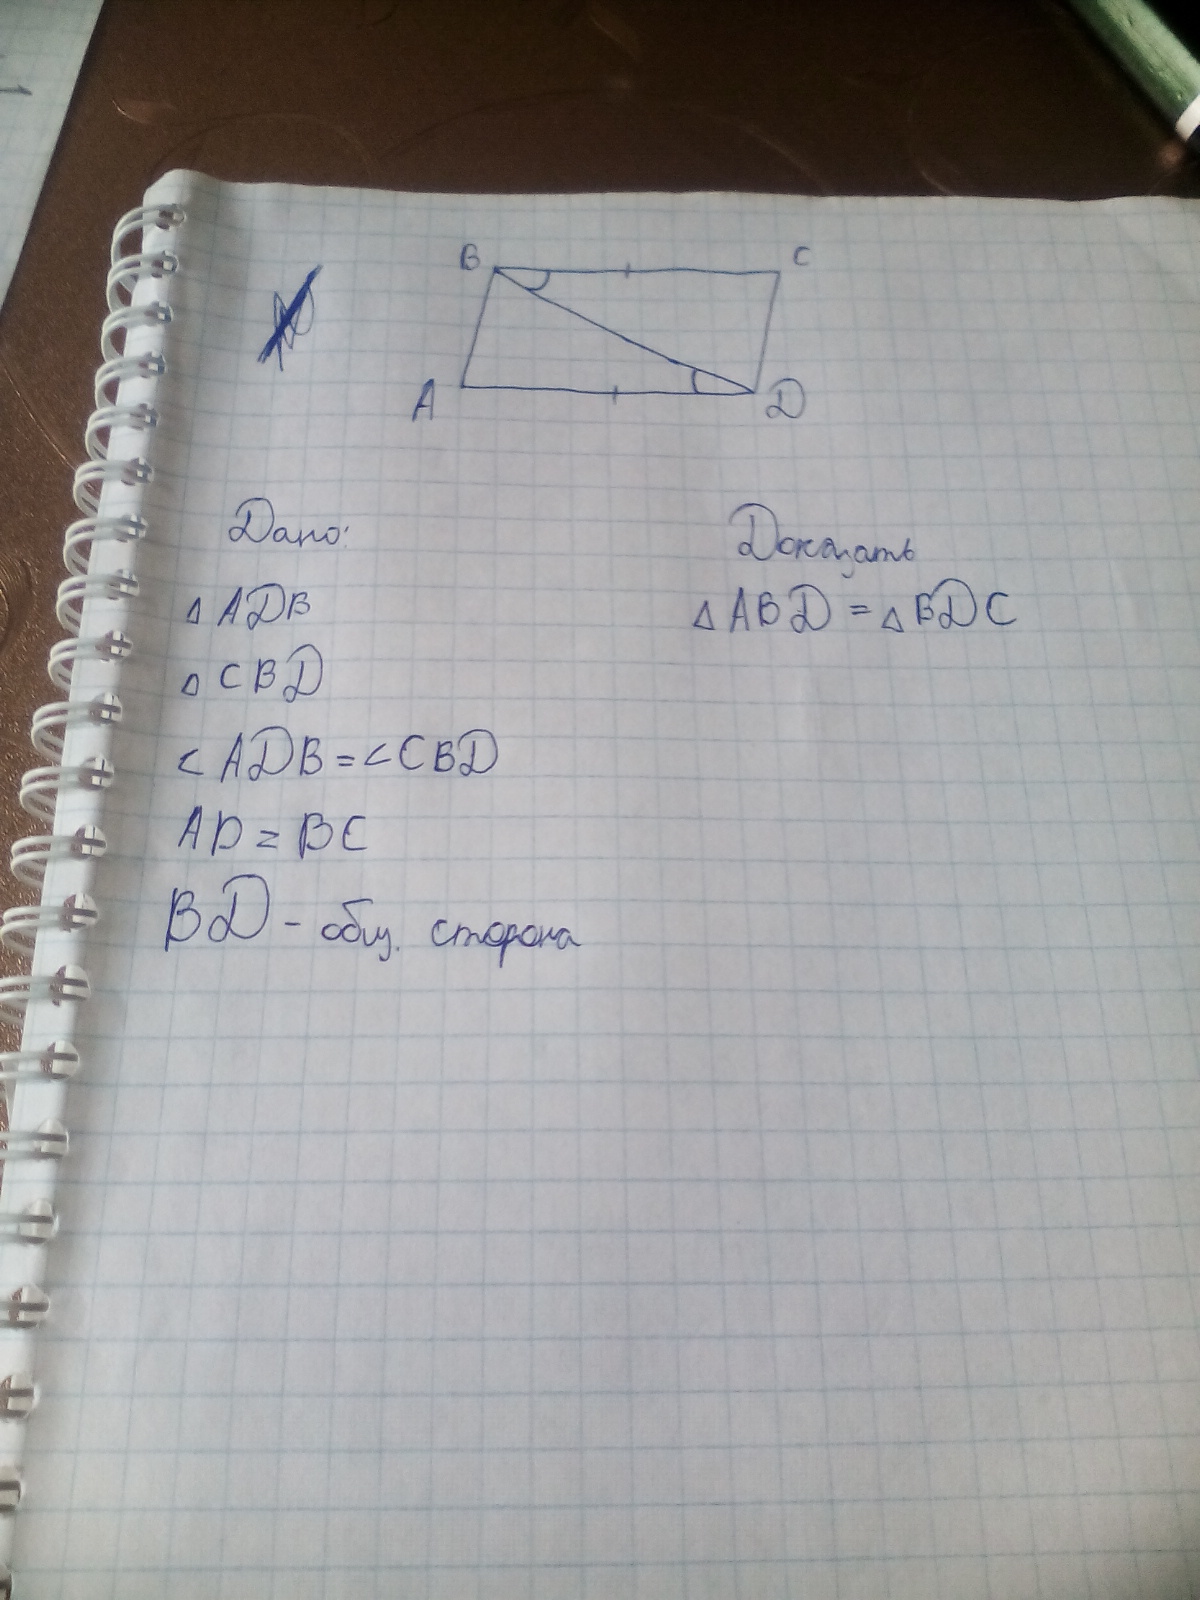 B C
A D
Дано:
Δ ADB
Δ CBD
< ADB = < CBD
AD = BC
BD - общ. сторона
Доказать
Δ ABD = Δ BDC